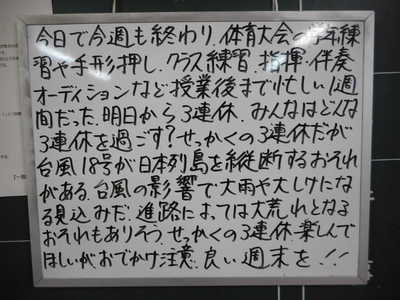 今日で今週も終わり.体育大会の学年練
習や手形押し.クラス練習.指揮・伴奏
オーディションなど授業後まで忙しい1週
間だった.明日から3連休.みんなはどんな
3連休を過ごす?せっかくの3連休だが
台風18号が日本列島を縦断するおそれ
がある.台風の影響で大雨や大しけにな
る見込みだ.進路によっては大荒れとなる
おそれもありそう.せっかくの3連休楽しんで
ほしいが、おでかけ注意.良い週末を!!